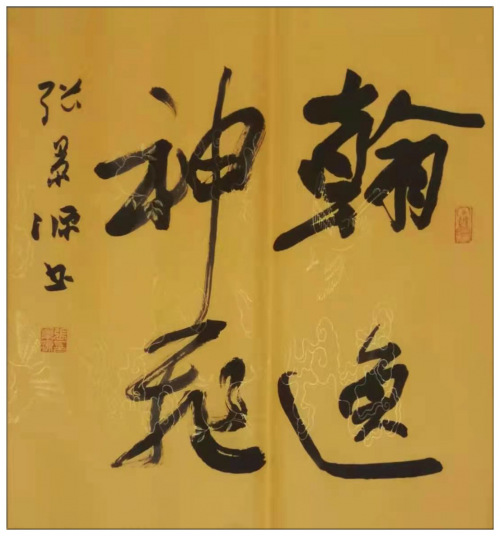 翰逸
神飛
张景源书